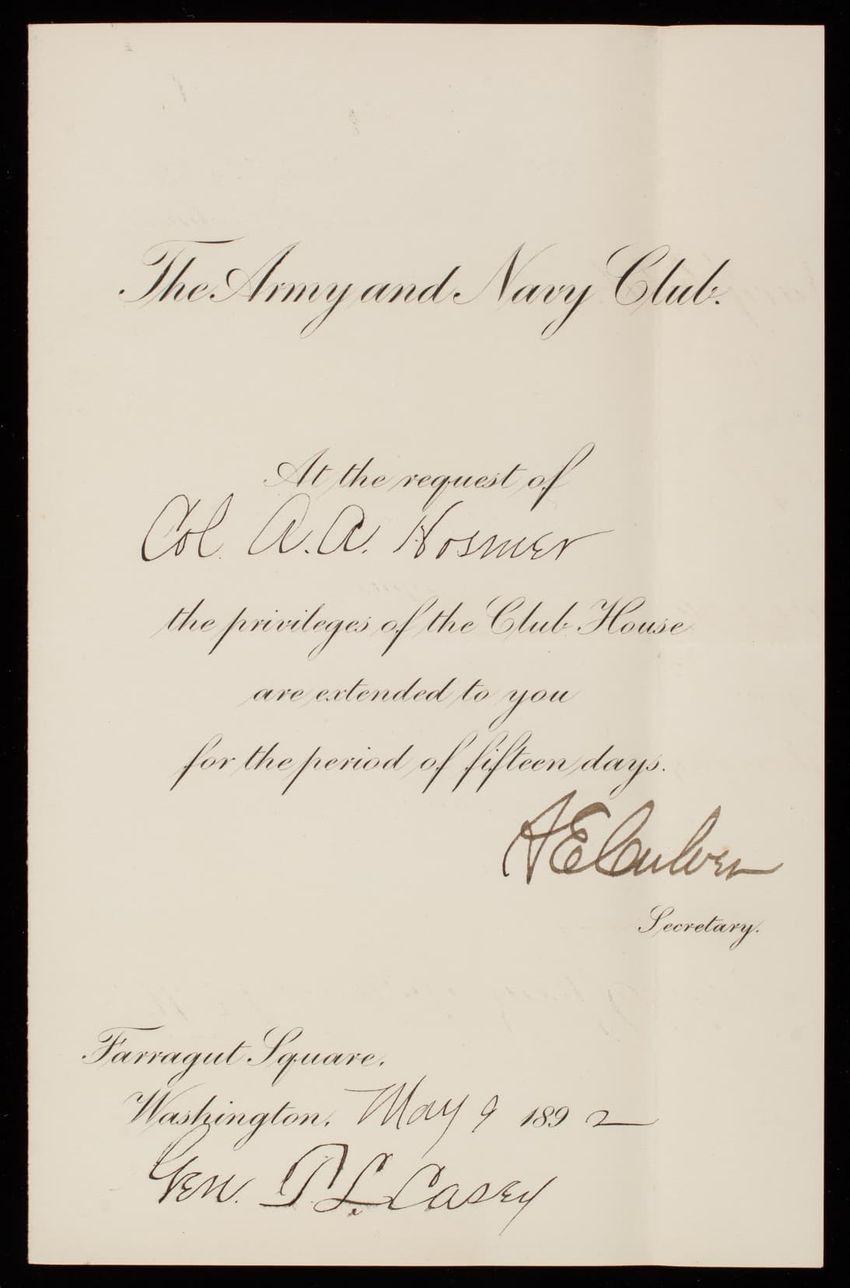 The Army and Navy Club.
At the request of
Col. A. A. Hosmer
the privileges of the Club House
are extended to you
for the period of fifteen days.
A E Culver
Secretary.
Farragut Square.
Washington, May 9 1892
Gen. T L Casey